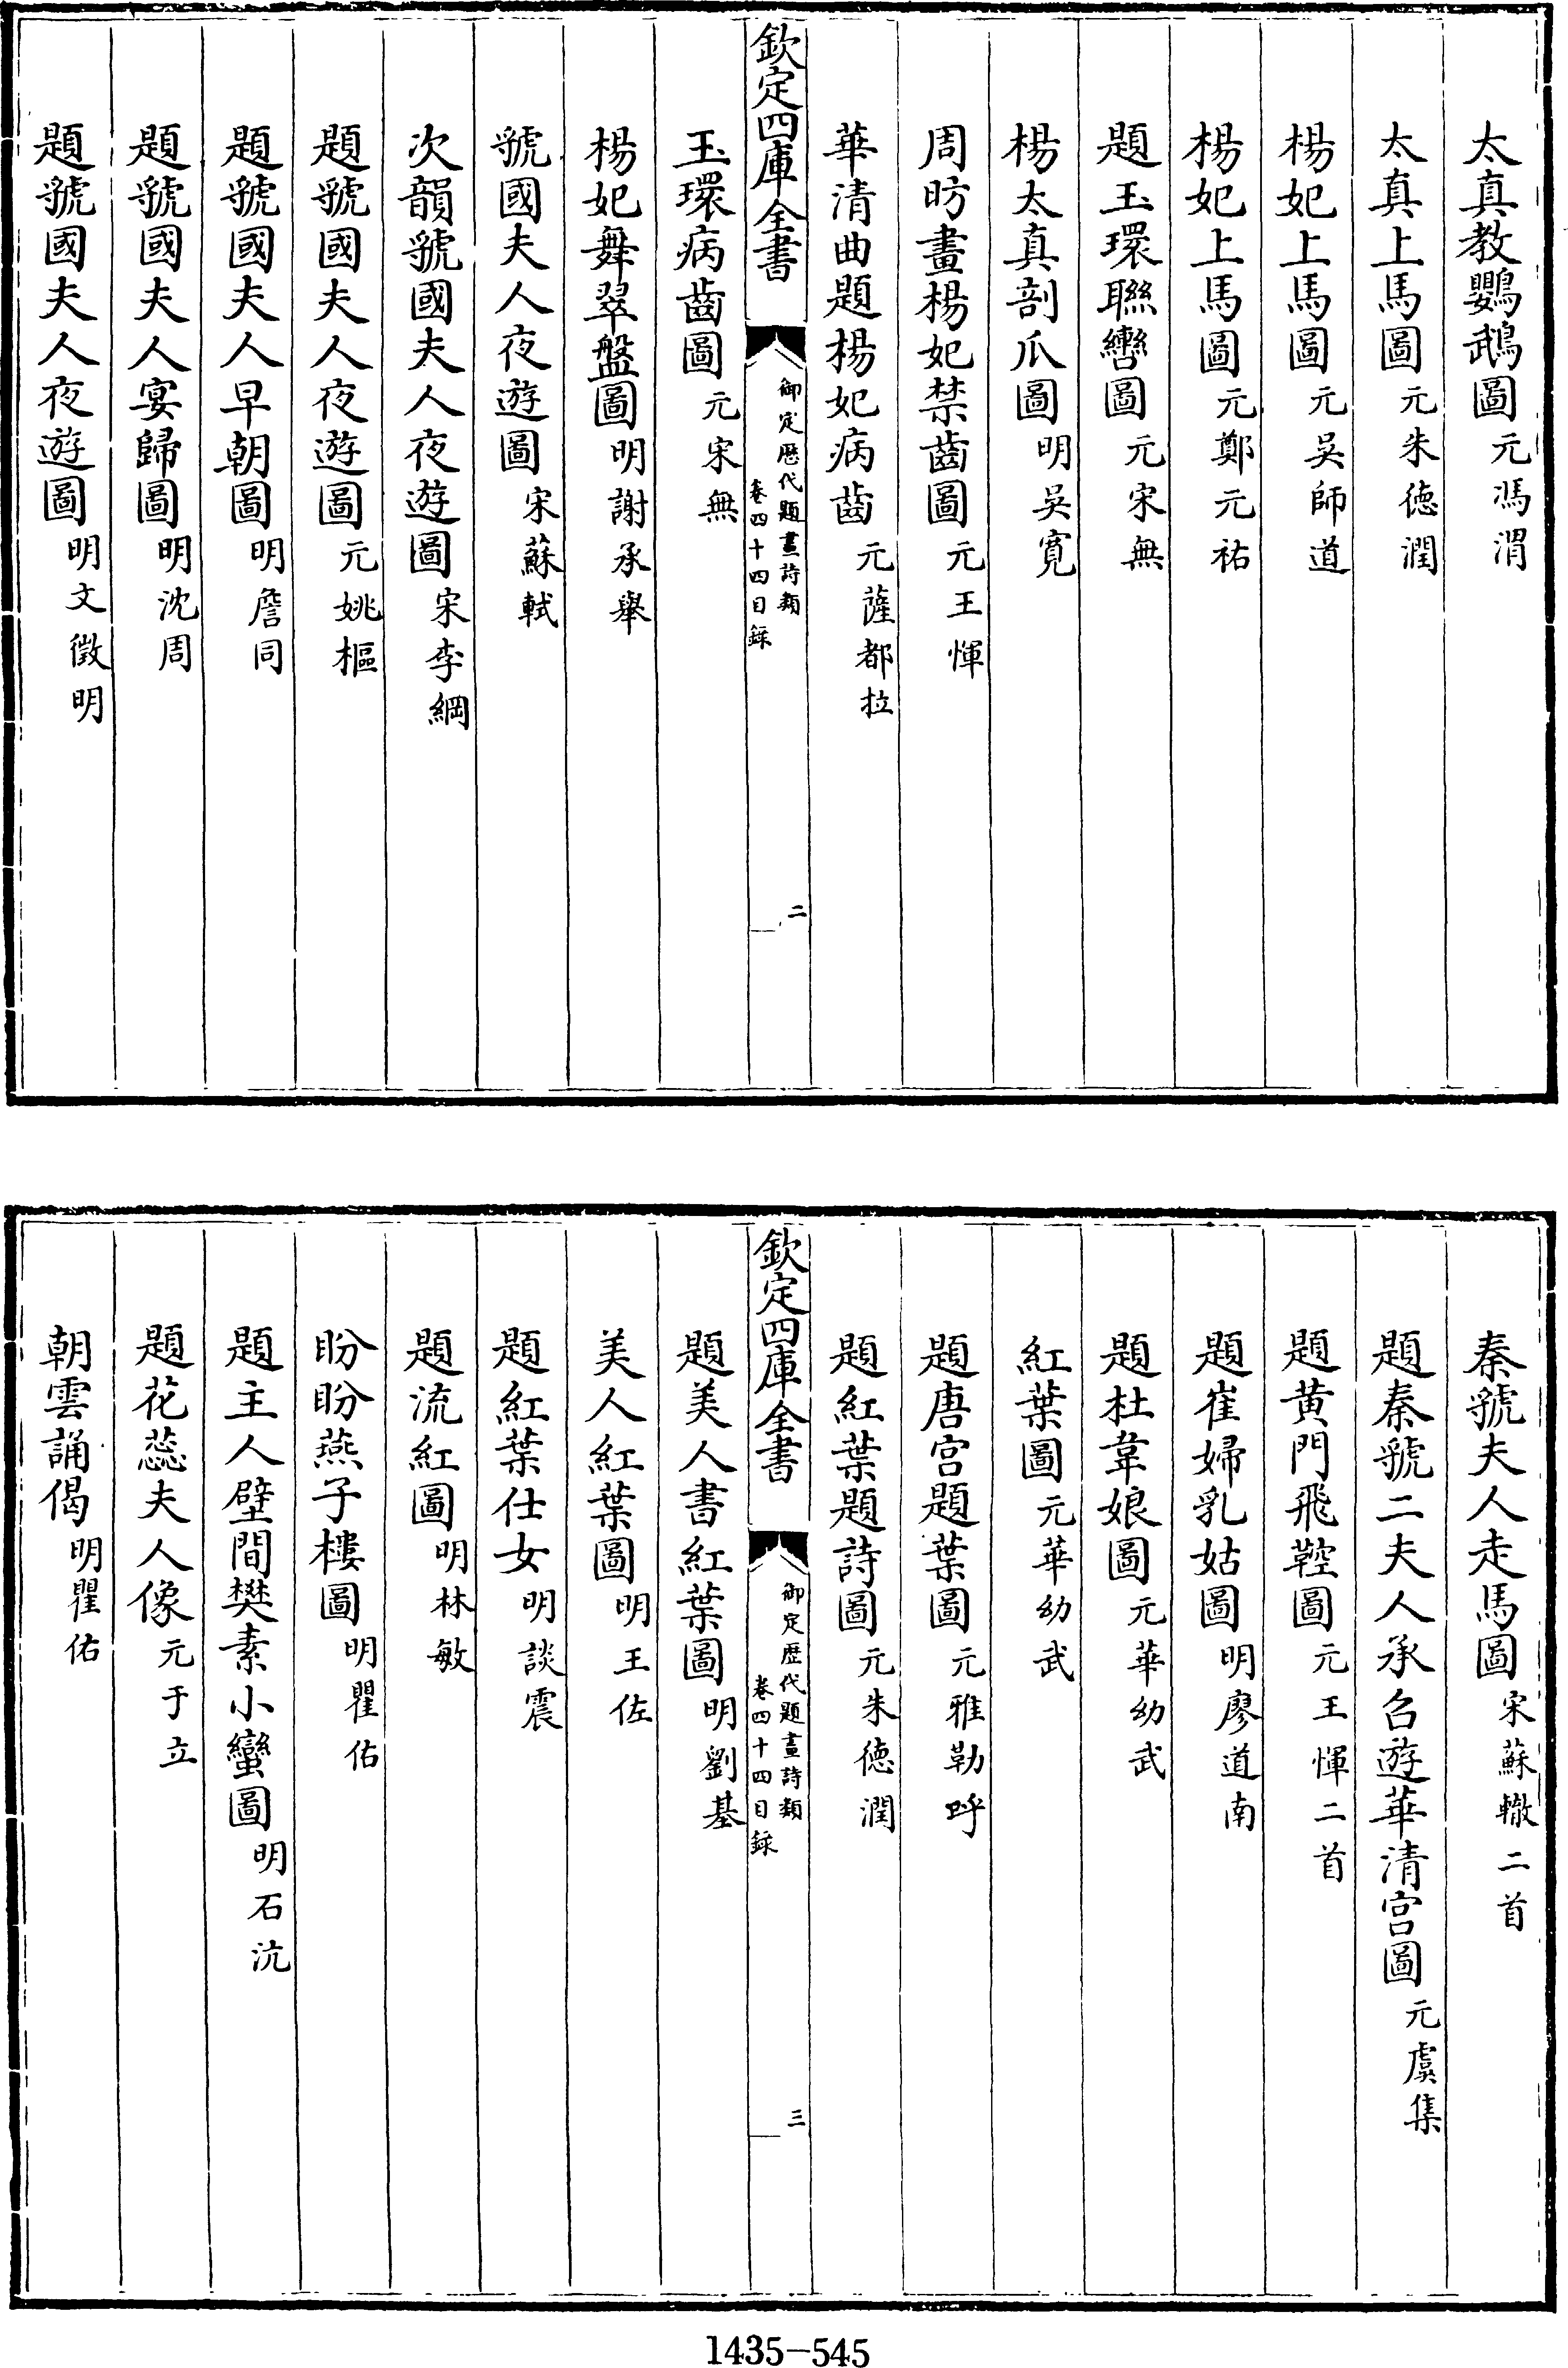 太真教鸚鵡圖 元馮渭
太真上馬圖 元朱徳潤
楊妃上馬圖 元吳師道
楊妃上馬圖 元鄭元祐
題玉環聯轡圖 元宋無
楊太真剖瓜圖 明吳寛
周昉畫楊妃禁齒圖 元王惲
華清曲題楊妃病齒 元薩都拉
欽定四庫全書
御定歴代題畫詩類
卷四十四目録
二
玉環病齒圖 元宋無
楊妃舞翠盤圖 明謝承舉
虢國夫人夜遊圖 宋蘇軾
次韻虢國夫人夜遊圖 宋李綱
題虢國夫人夜遊圖 元姚樞
題虢國夫人早朝圖 明詹同
題虢國夫人宴歸圖 明沈周
題虢國夫人夜遊圖 明文徵明
秦虢夫人走馬圖 宋蘇轍二首
題秦虢二夫人承召遊華清宫圖 元虞集
題黄門飛鞚圖 元王惲二首
題崔婦乳姑圖 明廖道南
題杜韋娘圖 元華幼武
紅葉圖 元華幼武
題唐宫題葉圖 元雅勒呼
題紅葉題詩圖 元朱徳潤
欽定四庫全書
御定歴代題畫詩類
卷四十四目録
三
題美人書紅葉圖 明劉基
美人紅葉圖 明王佐
題紅葉仕女 明談震
題流紅圖 明林敏
盼盼燕子樓圖 明瞿佑
題主人壁間樊素小蠻圖 明石沆
題花蕊夫人像 元于立
朝雲誦偈 明瞿佑
1435-545